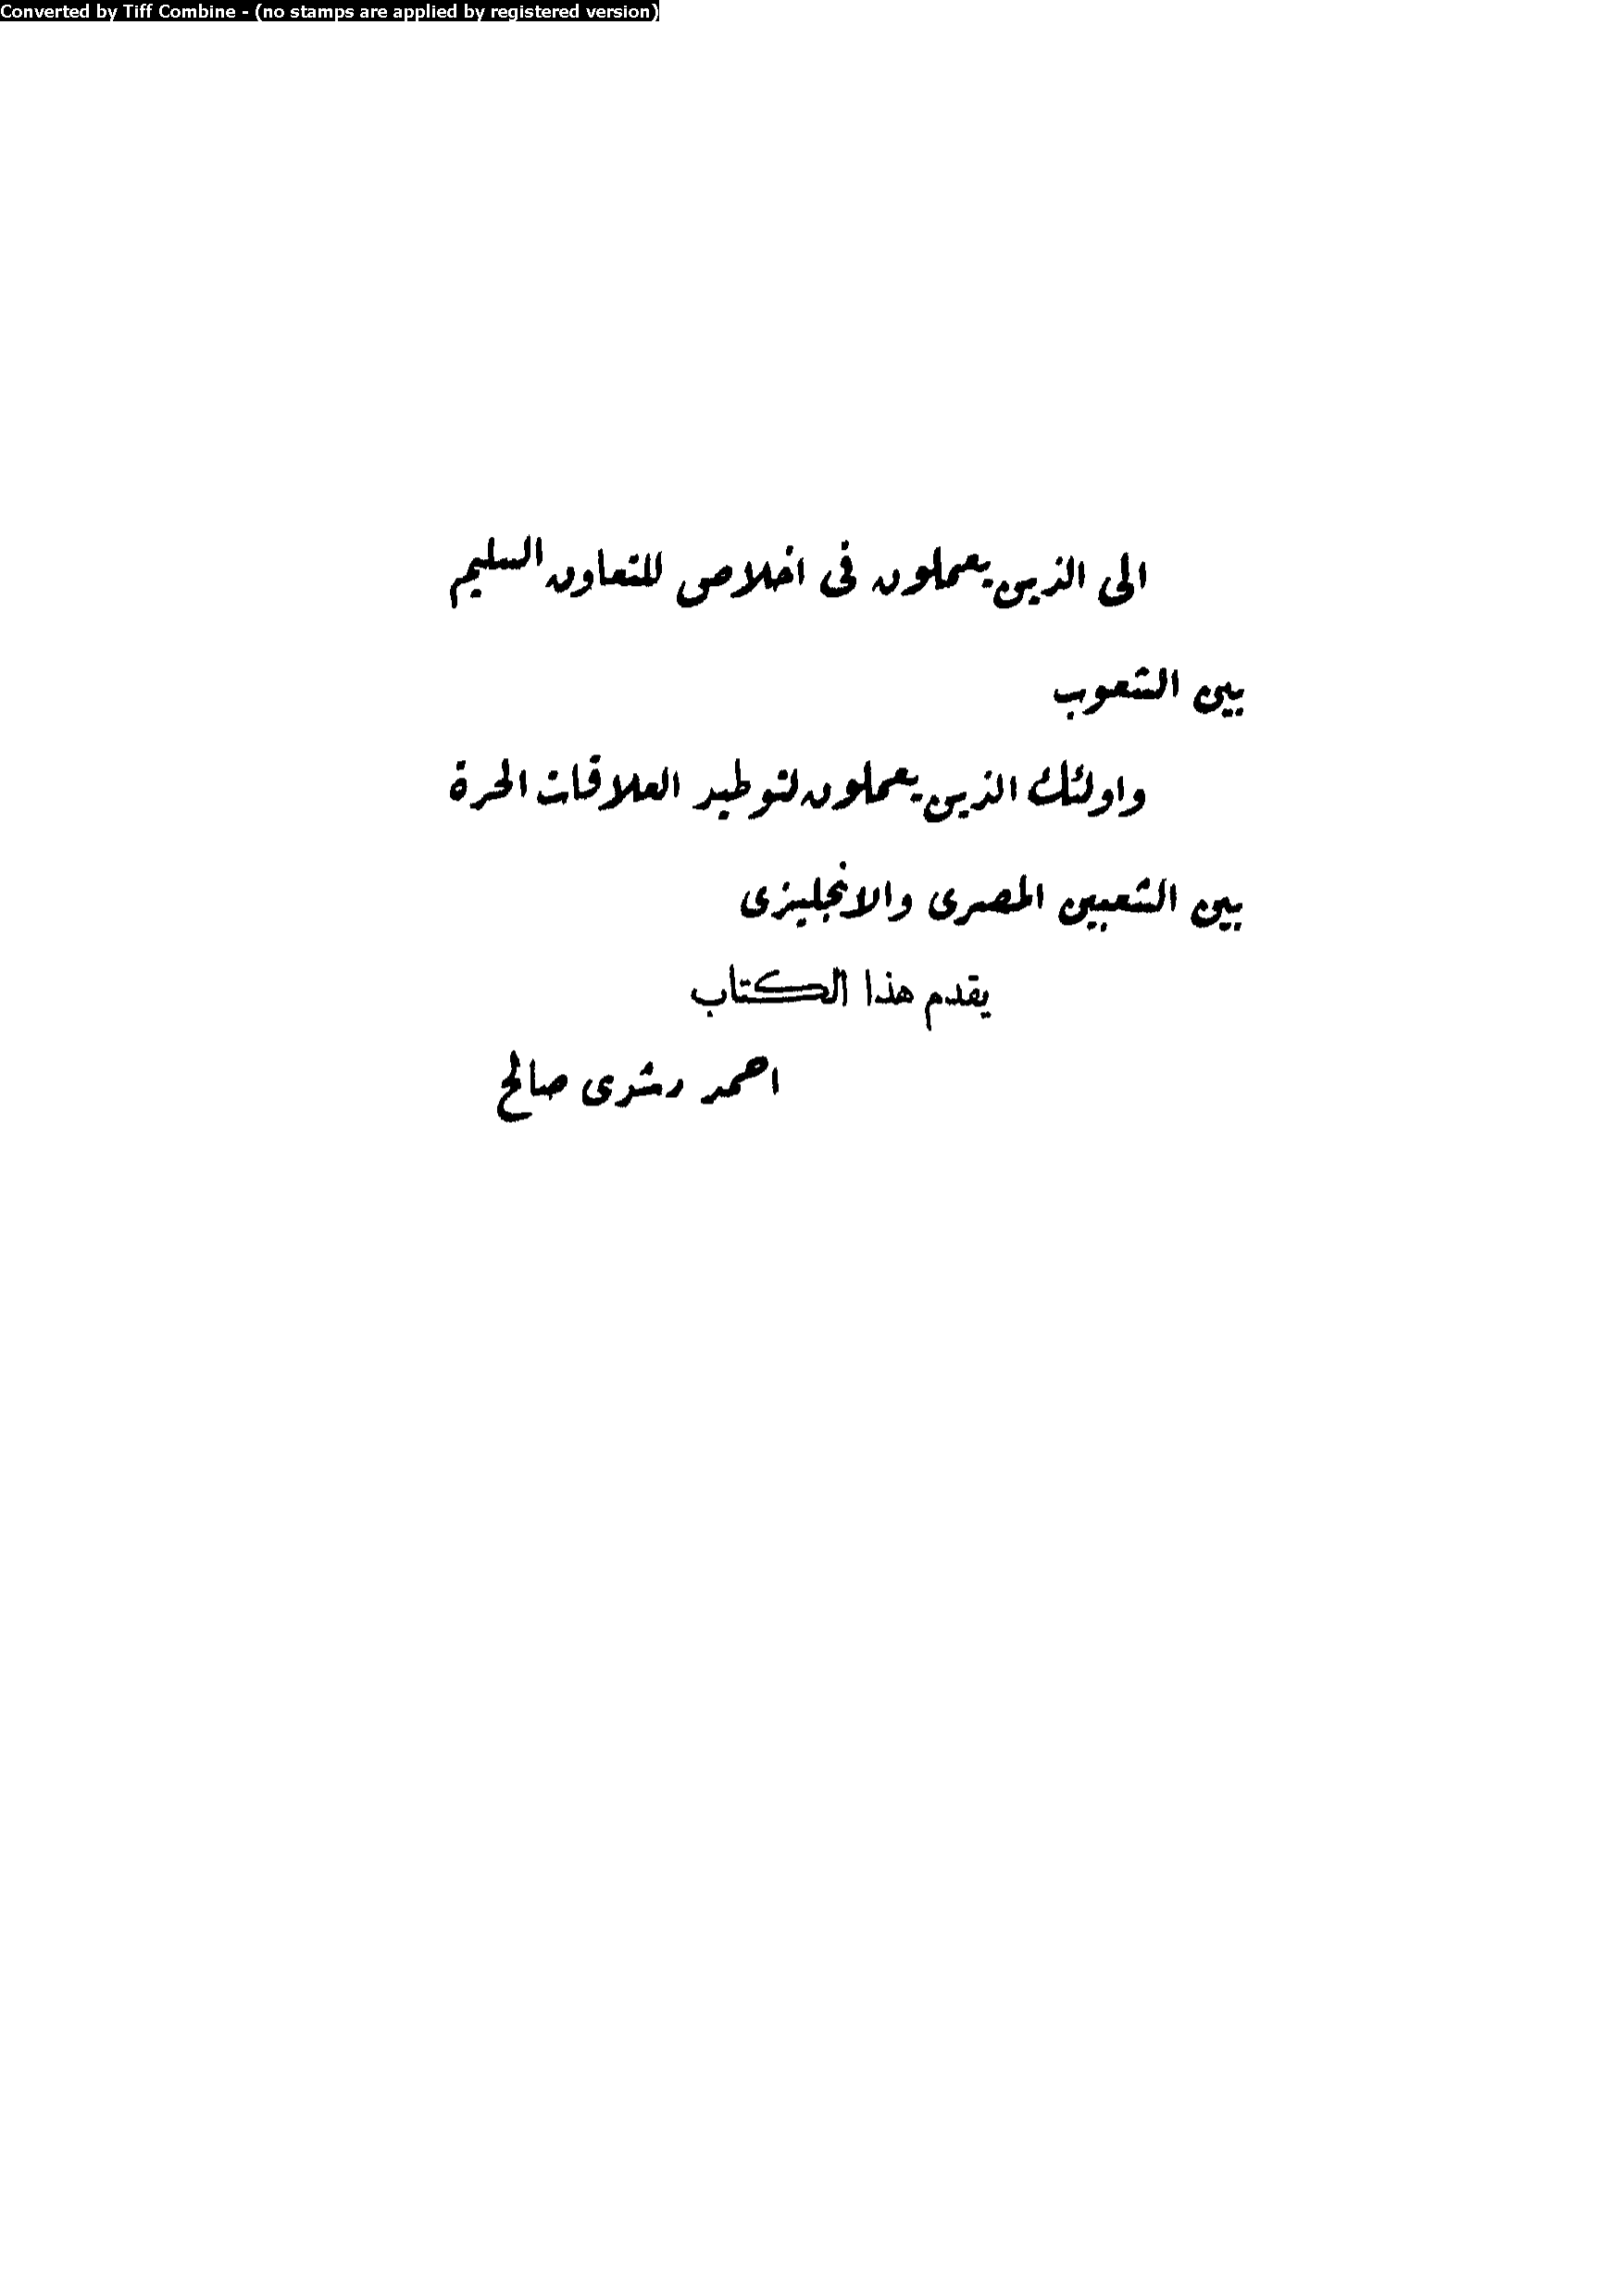 Converted by Tiff Combine - (no stamps are applied by registered version)
الى الذين يعملون فى اخلاص للتعاون السليم
بين الشعوب
واولئك الذين يعملون لتوطيد العلاقات الحرة
بين الشعبين المصرى والانجليزى
يقدم هذا الكتاب
احمد رشرى صالح